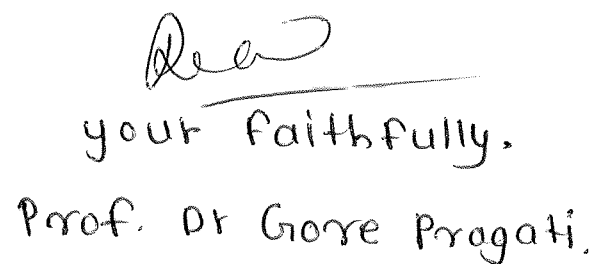 your faithfully.
Prof. Dr Gore Pragati.